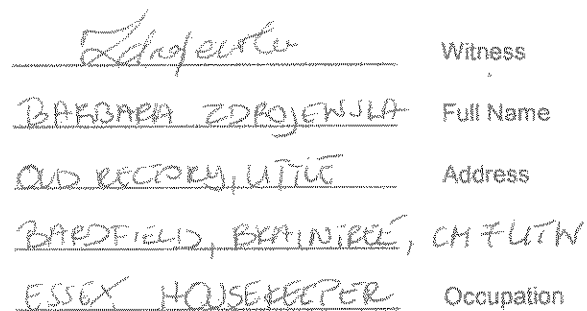 Zdrojewska Witness
BARBARA ZDROJEWSKA Full Name
OLD RECTORY, LITTLE Address
BARDFIELD, BRAINTREE, CM7 4TW
ESSEX HOUSEKEEPER Occupation